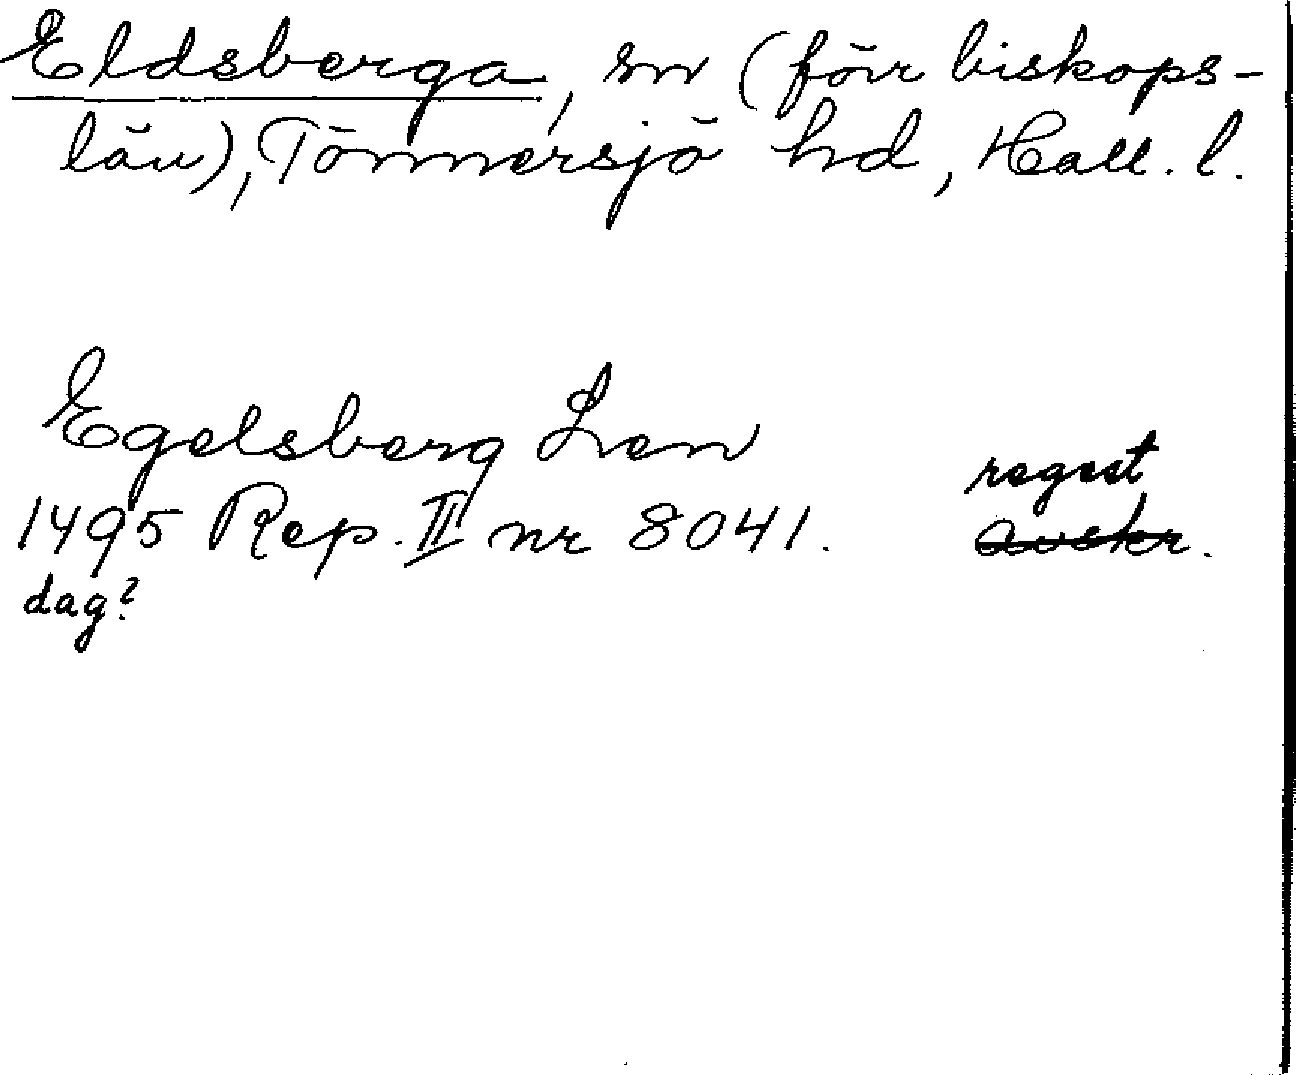 Eldsberga, sn (förr biskops-
län), Tönnersjö hd, Hall. l.
Egelsberg Len
regest
1495 Rep. II nr 8041. avskr.
dag?